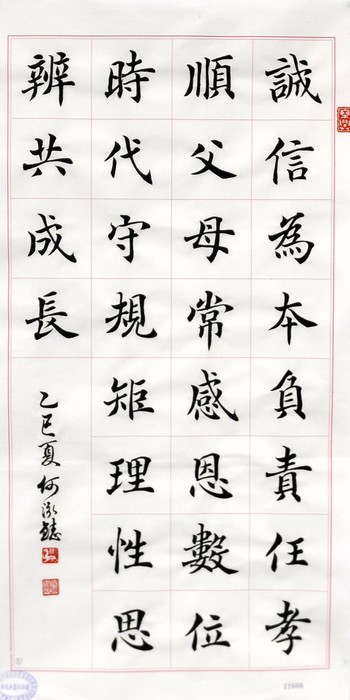 誠信為本負責任孝
順父母常感恩數位
時代守規矩理性思
辨共成長
乙巳夏何